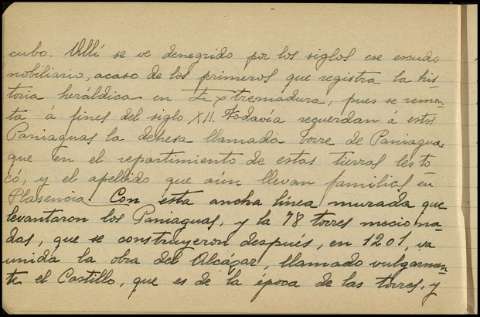 cubo. Allí se ve denegrido por los siglos ese escudo
nobiliario, acaso de los primeros que registra la his-
toria heráldica en Extremadura, pues se remon-
ta á fines del siglo XII. Todavía recuerdan á estos
Paniaguas la dehesa llamada Torre de Paniagua
que en el repartimiento de estas tierras les to-
có, y el apellido que aún llevan familias en
Plasencia. Con esta ancha línea murada que
levantaron los Paniaguas, y la 78 torres mecio na-
das, que se construyeron despues, en 1201, va
unida la obra del Alcázar, llamado vulgarmen-
te el Castillo, que es de la época de las torres, y